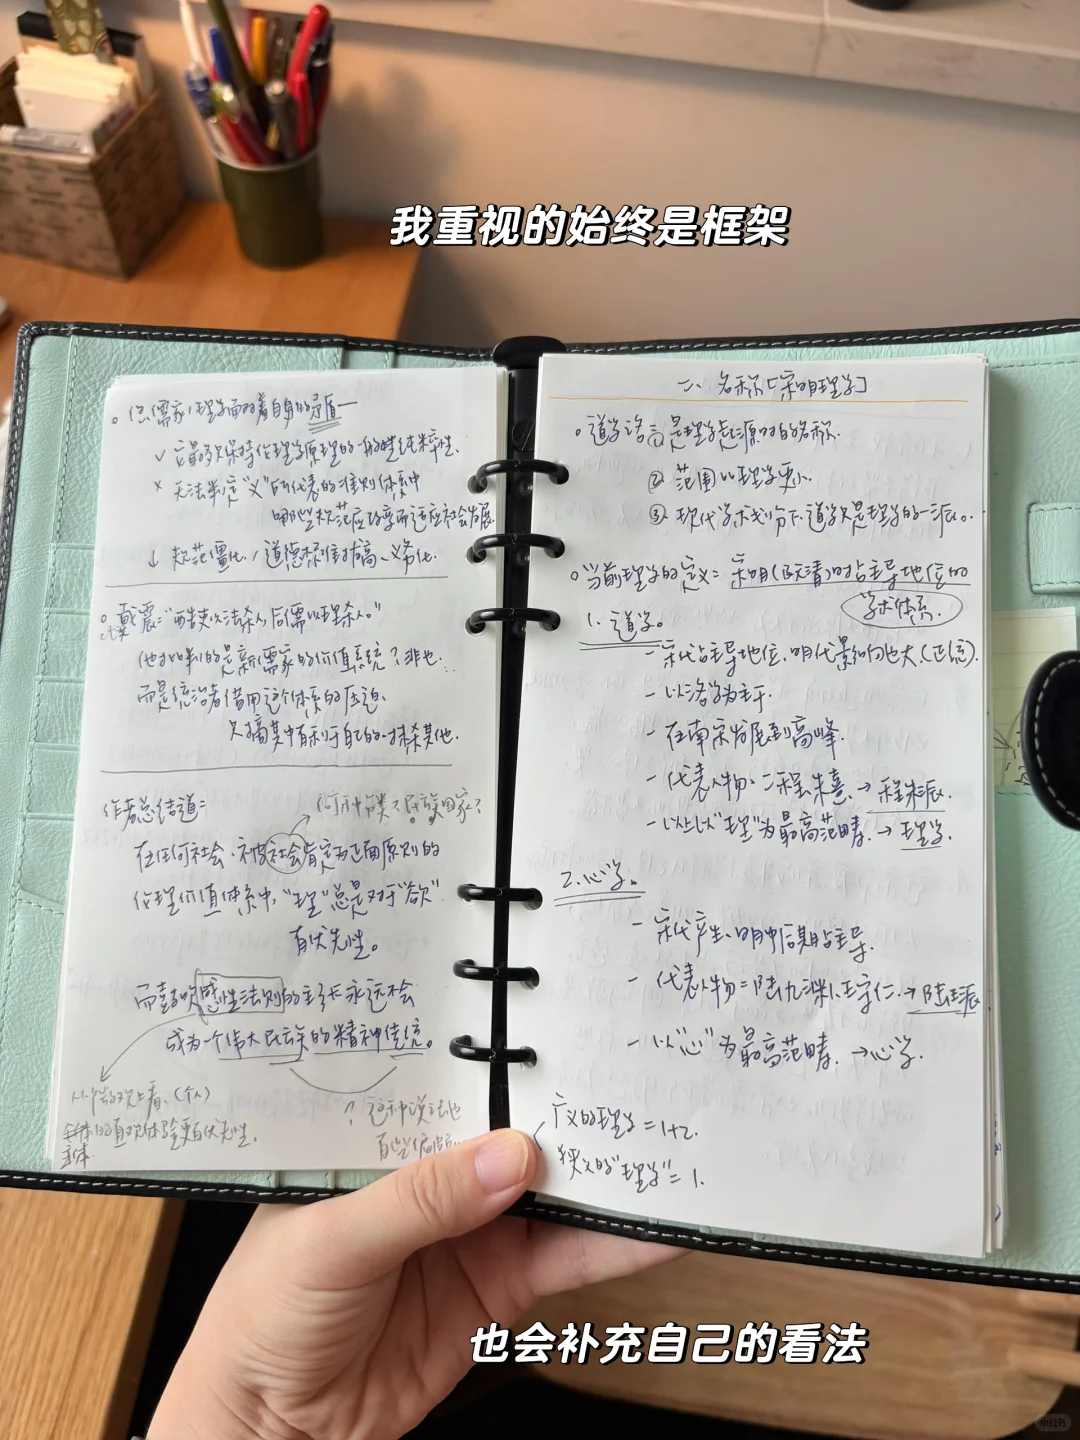 我重视的始终是框架
。但儒家/理学面对着自身的矛盾一
✓ 它最多只保持伦理学原理的一般性纯粹性、
× 无法判定“义”所代表的准则体系中
哪些规范应改变而适应社会发展
↓ 规范僵化、道德标准拔高、义务化、
。戴震:“酷吏以法杀人,后儒以理杀人。”
他批判的是新儒家的价值系统?非也、
而是统治者借用这个体系的压迫、
只摘其中有利于自己的、抹杀其他、
作者总结道:
何种群类?民族国家?
在任何社会、被社会肯定为正面原则的
伦理价值体系中,“理”总是对于“欲”
有优先性。
而喜欢感性法则的主张永远不会
成为一个伟大民族的精神传统。
从个体的观点上看、(个人)
主体的直观体验更有优先性、
? 这种说法也
有些偏颇
二、名称「宋明理学」
。道学: ① 是理学起源时的名称、
② 范围比理学更小、
③ 现代学术划分下、道学只是理学的一派。
。当前理学的定义: 宋明(及清)时占主导地位的
学术体系.
1、道学。
- 宋代占主导地位、明代影响也大、(正统).
- 以洛学为主干.
- 在南宋发展到高峰.
- 代表人物、二程、朱熹、→ 程朱派.
- 以上以“理”为最高范畴、→ 理学.
2、心学。
- 宋代产生、明中后期占主导.
- 代表人物: 陆九渊、王守仁、→ 陆王派
- 以“心”为最高范畴、→心学.
广义的理学=1+2.
狭义的“理学”=1.
也会补充自己的看法